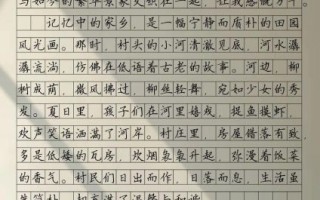 与如今的繁华景象交织在一起，让我感慨万千。
记忆中的家乡，是一幅宁静而质朴的田园
风光画。那时，村头的小河清澈见底，河水潺
潺流淌，仿佛在低语着古老的故事。河边，柳
树成荫，微风拂过，柳丝轻舞，宛如少女的秀
发。夏日里，孩子们在河里嬉戏，捉鱼摸虾，
欢声笑语洒满了河岸。村庄里，房屋错落有致，
多是低矮的瓦房，炊烟袅袅升起，弥漫着饭菜
的香气。村民们日出而作，日落而息，生活虽